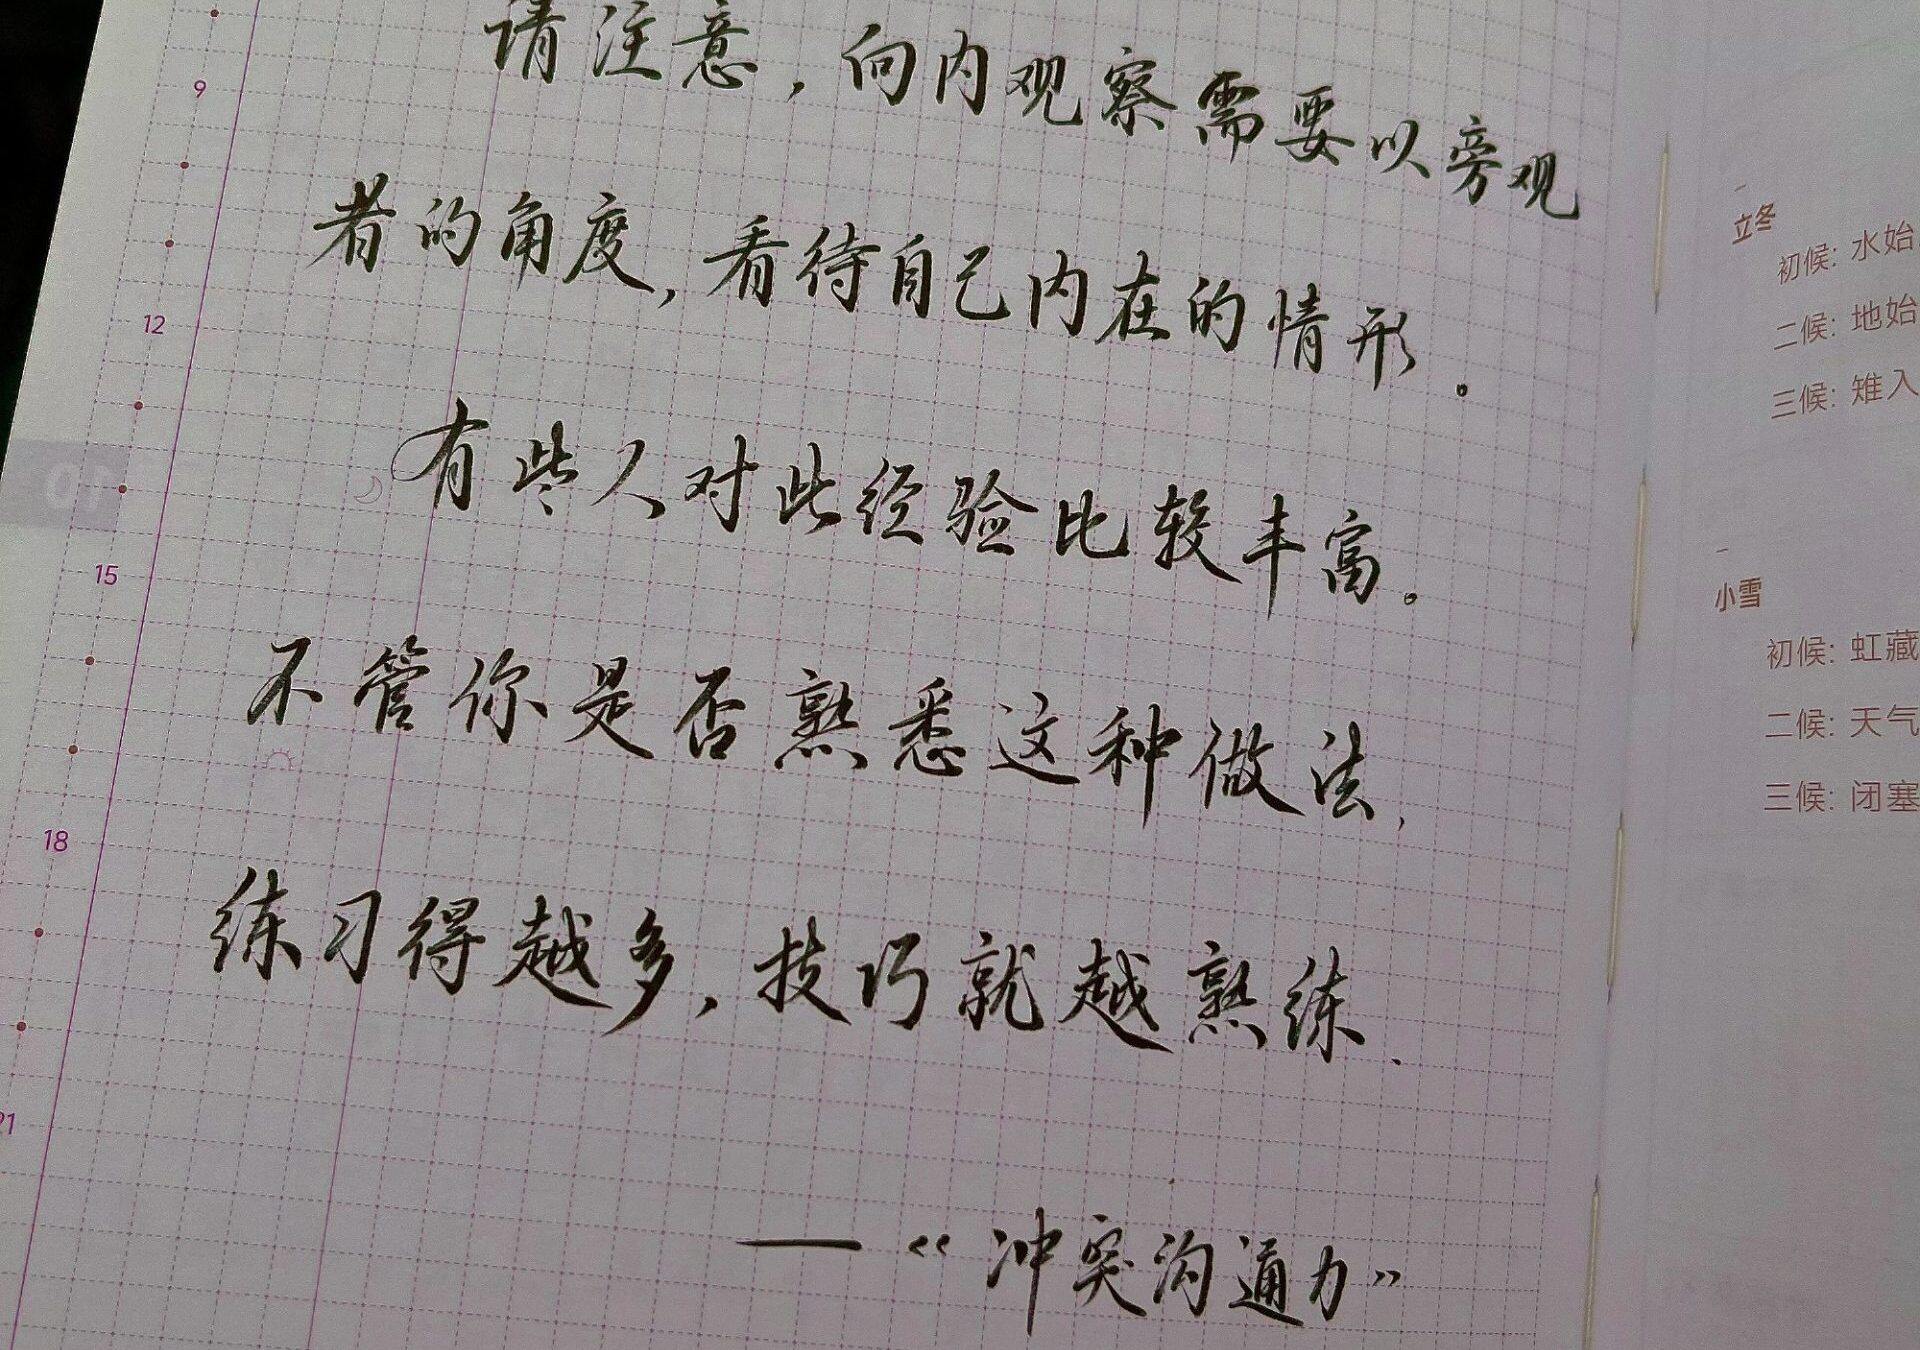 请注意，向内观察需要以旁观
者的角度，看待自己内在的情形。
有些人对此经验比较丰富。
不管你是否熟悉这种做法，
练习得越多，技巧就越熟练.
—《冲突沟通力》
9
12
01
15
18
21
立冬
初候: 水始
二候: 地始
三候: 雉入
小雪
初候: 虹藏
二候: 天气
三候: 闭塞